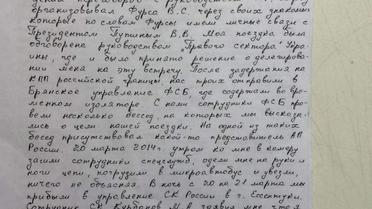 организовывал Фурса В.С. через своих знакомых
которые по словам Фурсы имели личные связи с
Президентом Путиным В.В. Моя поездка была
одобрена руководством „Правого сектора" Укра-
ины, где и было принято решение о делегирова-
нии меня на эту встречу. После задержания на
КПП российской границы нас троих отправили в
Брянское управление ФСБ, где содержали во вре-
менном изоляторе. С нами сотрудники ФСБ про-
вели несколько бесед, на которых мы высказа-
лись о цели нашей поездки. На одной из таких
бесед присутствовал какой-то представитель АП
России. 20 марта 2014г. утром ко мне в камеру
зашли сотрудники спецслужб, одели мне на руки и
ноги цепи, погрузили в микроавтобус и увезли,
ничего не объясняя. В ночь с 20 на 21 марта мы
прибыли в управление СК России в г. Ессентуки.
Сотрудник СК Курбанов М. заявил мне что я